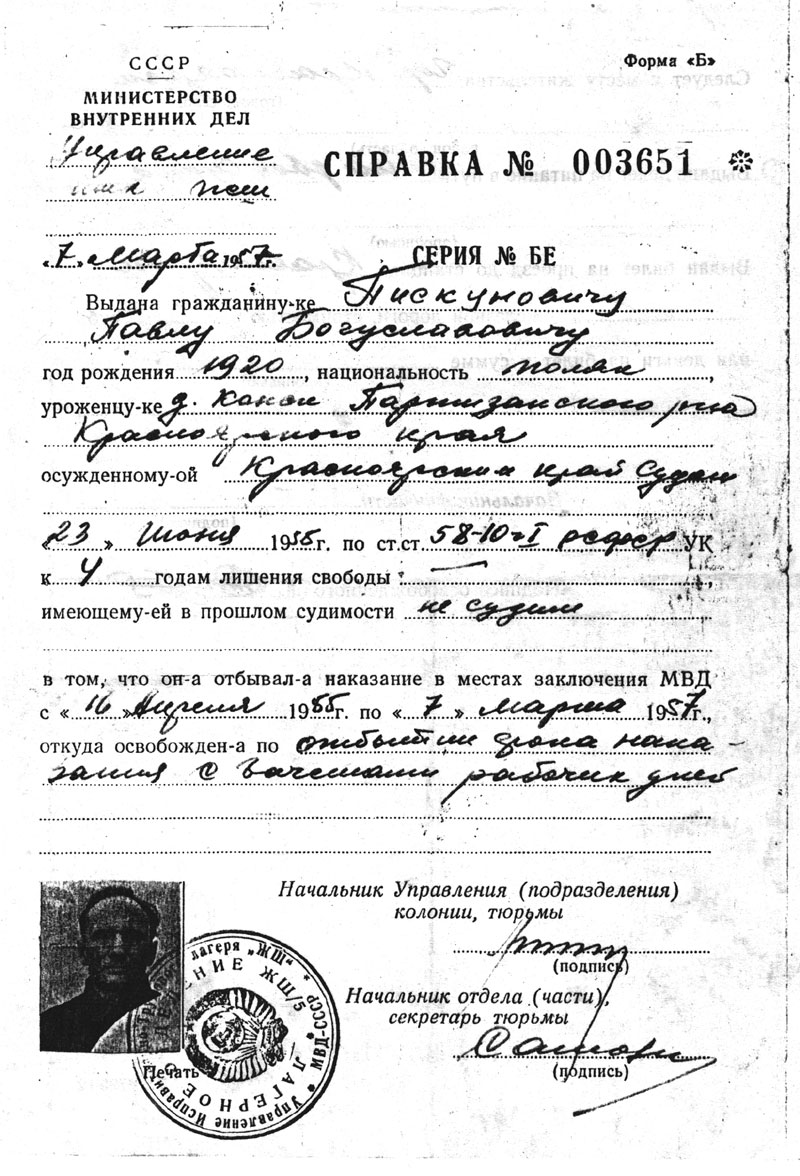 СССР
Форма «Б»
МИНИСТЕРСТВО
ВНУТРЕННИХ ДЕЛ
Управление
СПРАВКА № 003651
«7» Марта 1957г.
СЕРИЯ № БЕ
Выдана гражданину-ке Пискуновичу
Павлу Богуславовичу
год рождения 1920, национальность поляк,
уроженцу-ке д. Канок Партизанского р-на
Красноярского края
осужденному-ой Красноярским край судом
«23» Июня 1955г. по ст.ст. 58-10 ч I РСФСР УК
к 4 годам лишения свободы —,
имеющему-ей в прошлом судимости не судим
в том, что он-а отбывал-а наказание в местах заключения МВД
с «16» Апреля 1955г. по «7» Марта 1957г.,
откуда освобожден-а по отбытии срока нака-
зания с зачетами рабочих дней
Начальник Управления (подразделения)
колонии, тюрьмы
(подпись)
Начальник отдела (части),
секретарь тюрьмы
(подпись)
Печать
лагеря „ЖШ“ * МВД-СССР * Управление Исправит
ЛАГЕРНОЕ ЖШ/5